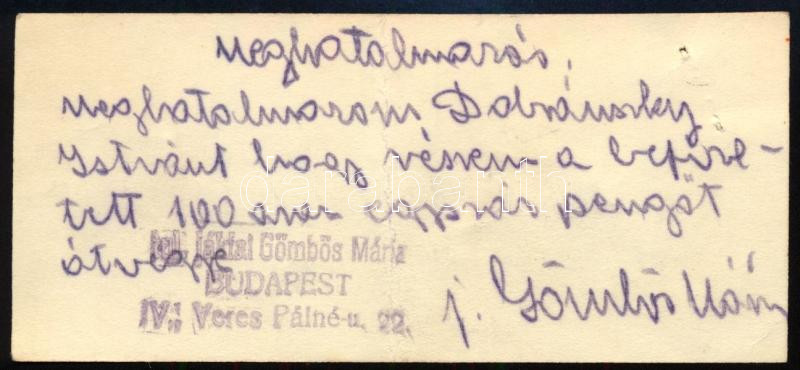 Meghatalmazás,
Meghatalmazom Dobránszky
Istvánt hogy részem a befize-
tett 100 azaz pengőt
átvegye
jákfai Gömbös Mária
BUDAPEST
IV., Veres Pálné-u. 22.
j. Gömbös Mária
darabanth